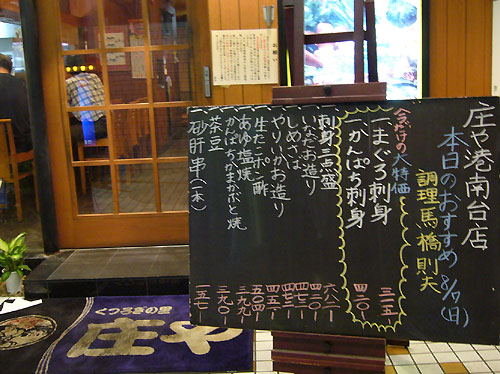 庄や港南台店
本日のおすすめ 8/7(日)
調理馬橋則夫
今だけの大特価
一まぐろ刺身 三一五-
一かんぱち刺身 四二〇-
刺身三点盛 六八二-
一いなだお造り 四二〇-
一しめさば 四七二-
一やりいかお造り 四五一-
一生だこポン酢 五〇四-
一あゆ塩焼 三九九-
一かんぱちかまかぶと焼
一茶豆 三九〇-
一砂肝串(一本) 一五七-
お願い
くつろぎの里
庄や